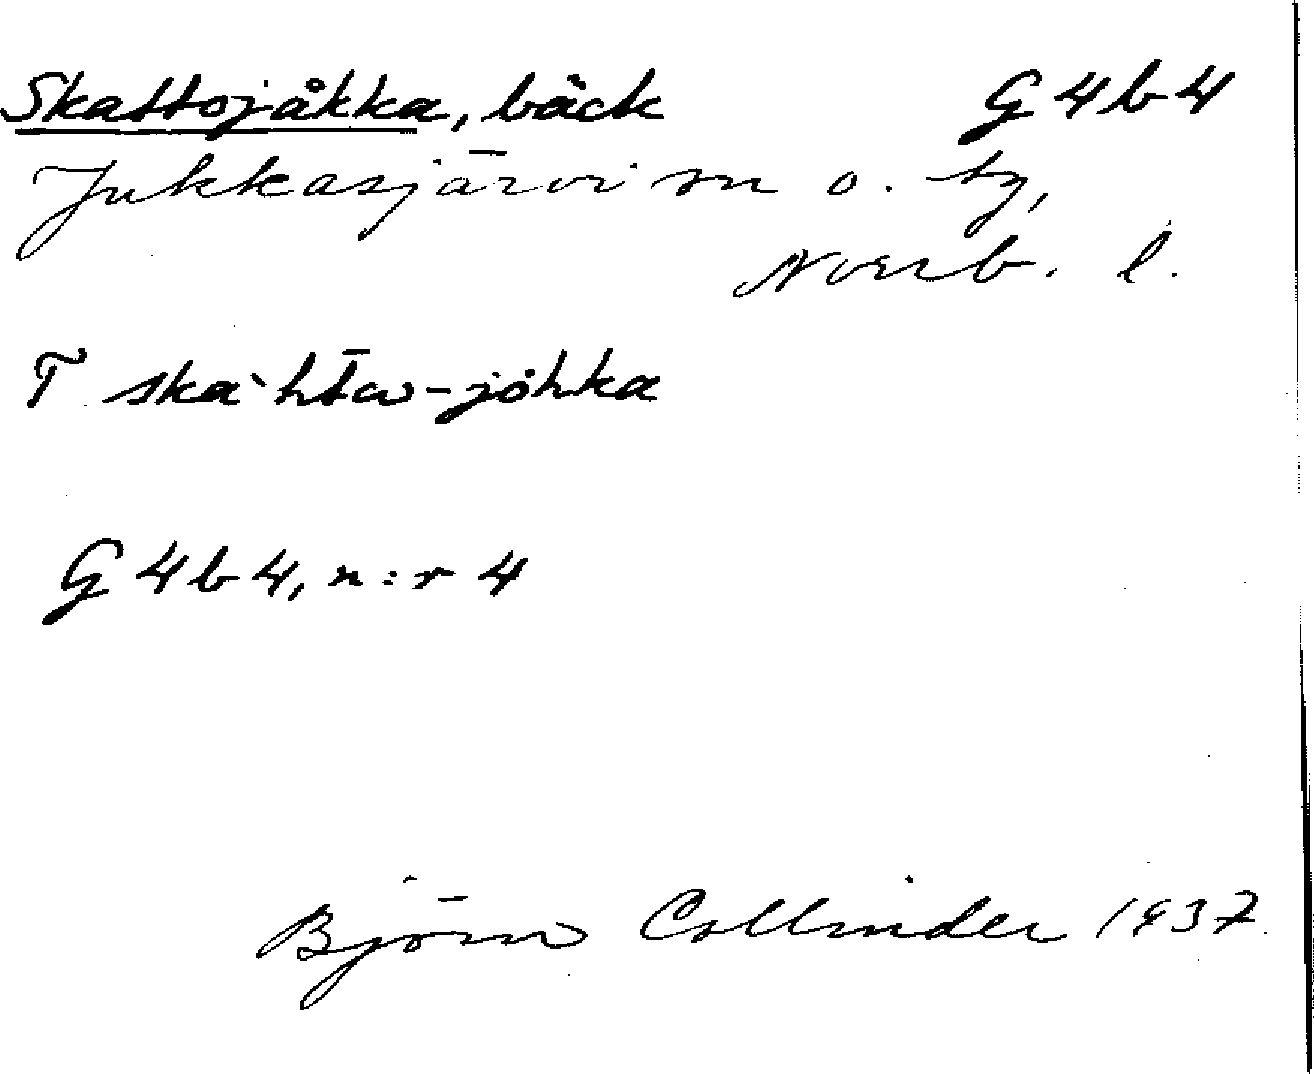 Skattojåkka, bäck G4b4
Jukkasjärvi sn o. tg,
Norrb. l.
T skaˋht̄ω-jȯhka
G4b4, n:r 4
Björn Collinder 1937